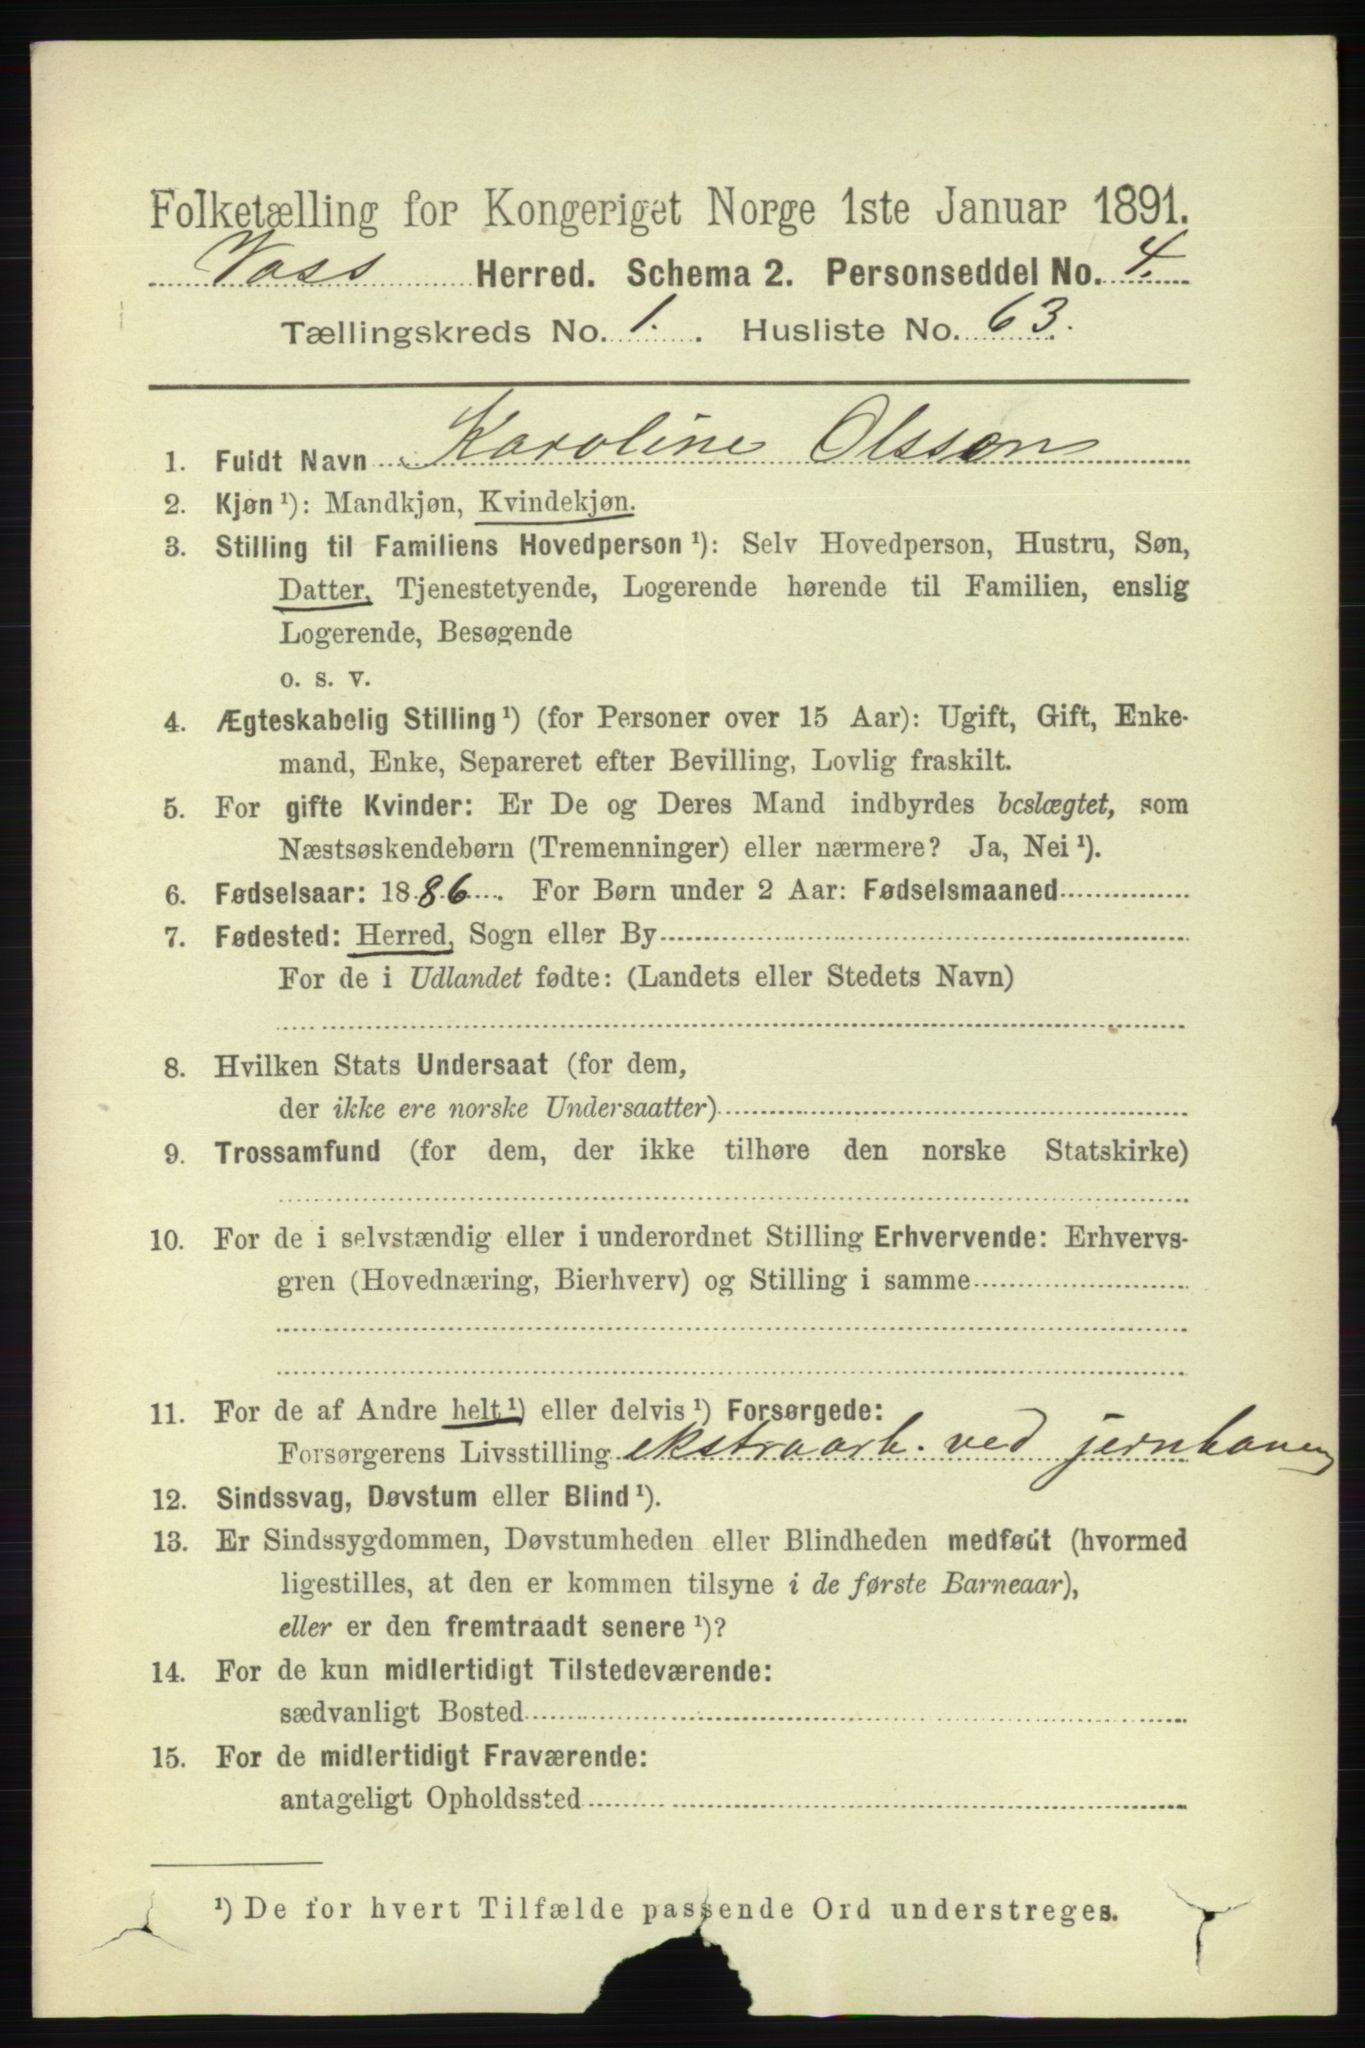 Folketælling for Kongeriget Norge 1ste Januar 1891.
Voss Herred. Schema 2. Personseddel No. 4.
Tællingskreds No. 1. Husliste No. 63.
1. Fuldt Navn Karoline Olsson
2. Kjøn ¹): Mandkjøn, Kvindekjøn.
3. Stilling til Familiens Hovedperson ¹): Selv Hovedperson, Hustru, Søn,
Datter, Tjenestetyende, Logerende hørende til Familien, enslig
Logerende, Besøgende
o. s. v.
4. Ægteskabelig Stilling ¹) (for Personer over 15 Aar): Ugift, Gift, Enke-
mand, Enke, Separeret efter Bevilling, Lovlig fraskilt.
5. For gifte Kvinder: Er De og Deres Mand indbyrdes beslægtet, som
Næstsøskendebørn (Tremenninger) eller nærmere? Ja, Nei ¹).
6. Fødselsaar: 1886. For Børn under 2 Aar: Fødselsmaaned
7. Fødested: Herred, Sogn eller By
For de i Udlandet fødte: (Landets eller Stedets Navn)
8. Hvilken Stats Undersaat (for dem,
der ikke ere norske Undersaatter)
9. Trossamfund (for dem, der ikke tilhøre den norske Statskirke)
10. For de i selvstændig eller i underordnet Stilling Erhvervende: Erhvervs-
gren (Hovednæring, Bierhverv) og Stilling i samme
11. For de af Andre helt ¹) eller delvis ¹) Forsørgede:
Forsørgerens Livsstilling ekstraarb. ved jernbanen
12. Sindssvag, Døvstum eller Blind ¹).
13. Er Sindssygdommen, Døvstumheden eller Blindheden medfødt (hvormed
ligestilles, at den er kommen tilsyne i de første Barneaar),
eller er den fremtraadt senere ¹)?
14. For de kun midlertidigt Tilstedeværende:
sædvanligt Bosted
15. For de midlertidigt Fraværende:
antageligt Opholdssted
¹) De for hvert Tilfælde passende Ord understreges.